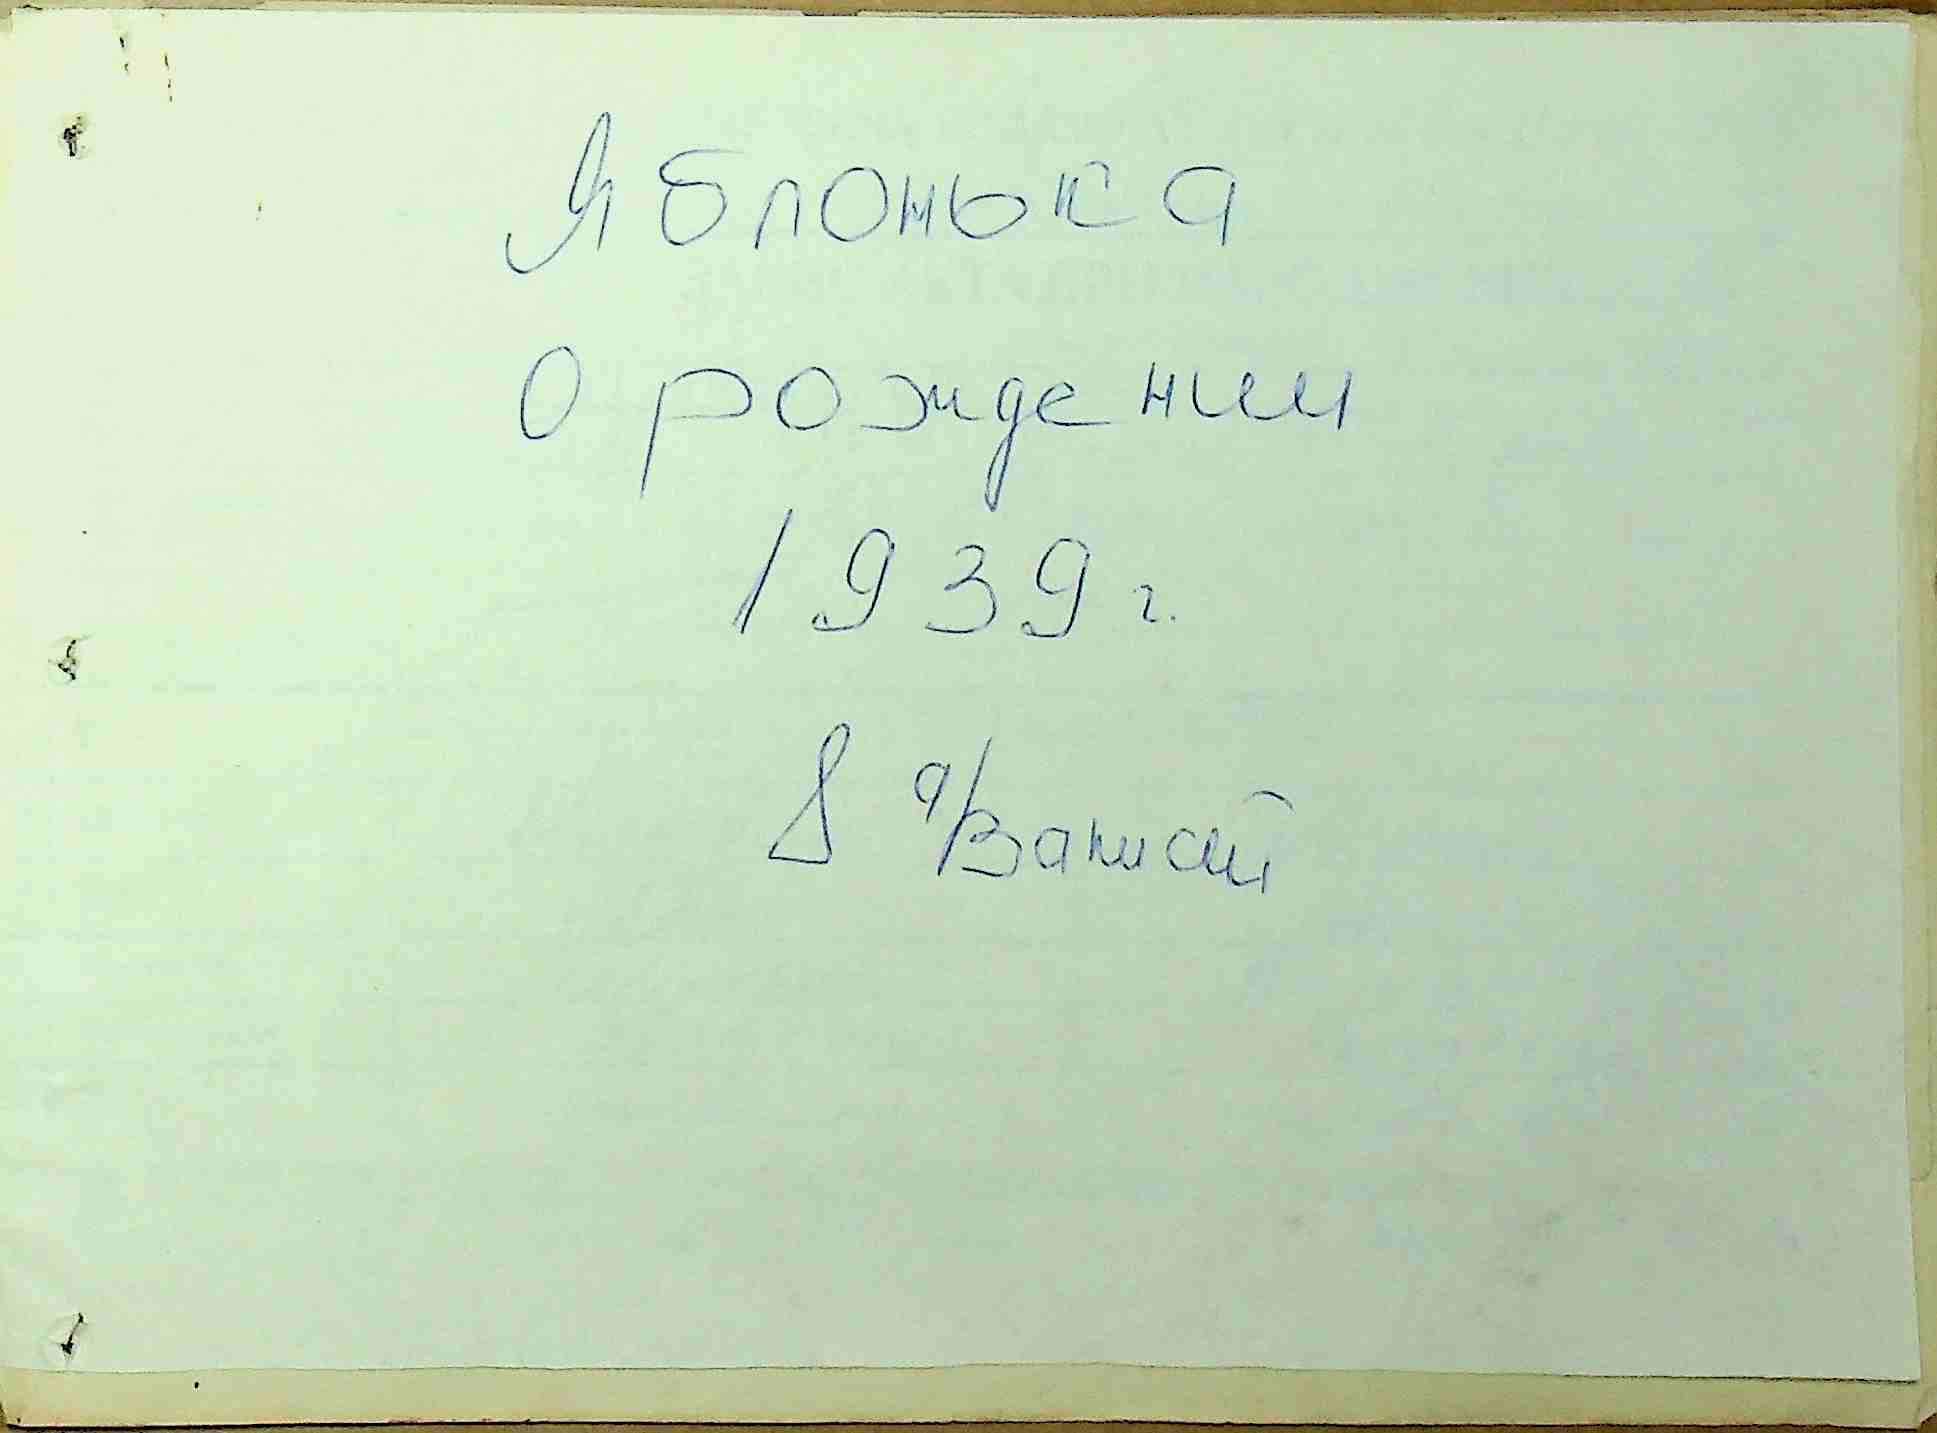 Яблонька
О рождении
1939 г.
8 а/записей